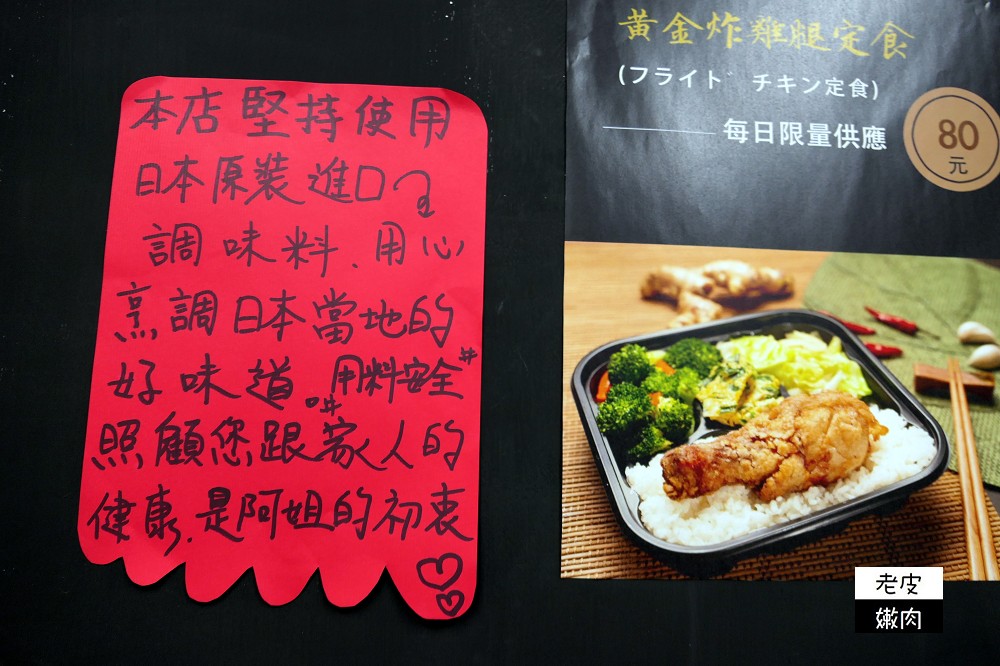 本店堅持使用
日本原裝進口ㄟ
調味料、用心
烹調日本當地的
好味道。用料安全
照顧您跟家人的
健康.是阿姐的初衷
黃金炸雞腿定食
(フライト゛チキン定食)
每日限量供應
80
元
老皮
嫩肉